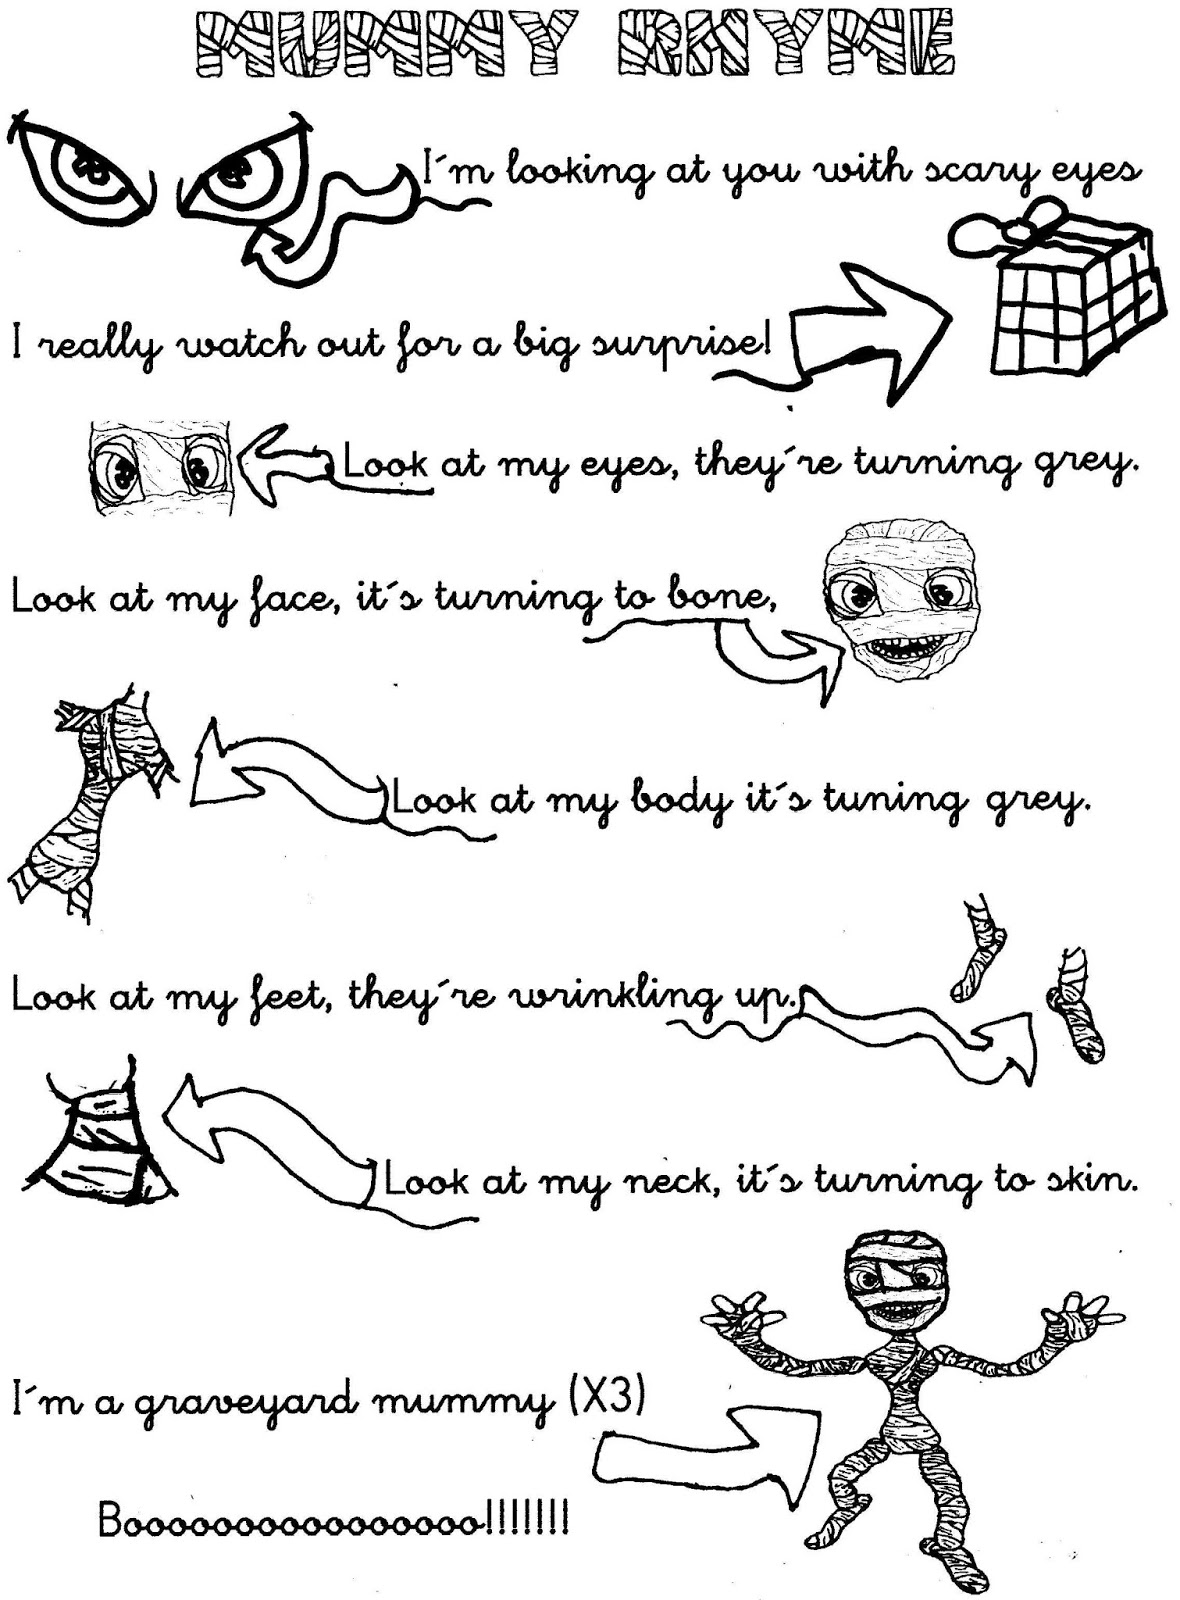 MUMMY RHYME
I´m looking at you with scary eyes
I really watch out for a big surprise!
Look at my eyes, they´re turning grey.
Look at my face, it´s turning to bone,
Look at my body it´s tuning grey.
Look at my feet, they´re wrinkling up.
Look at my neck, it´s turning to skin.
I´m a graveyard mummy (X3)
Boooooooooooooooo!!!!!!!